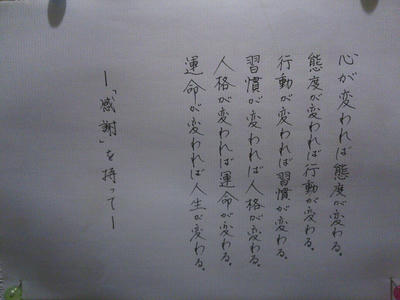 心が変われば態度が変わる。
態度が変われば行動が変わる。
行動が変われば習慣が変わる。
習慣が変われば人格が変わる。
人格が変われば運命が変わる。
運命が変われば人生が変わる。
ー「感謝」を持ってー